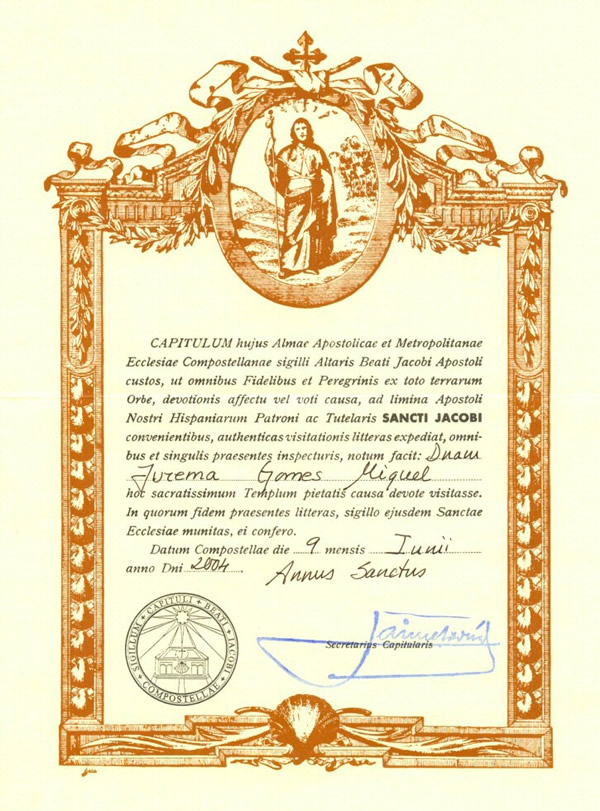 CAPITULUM hujus Almae Apostolicae et Metropolitanae
Ecclesiae Compostellanae sigilli Altaris Beati Jacobi Apostoli
custos, ut omnibus Fidelibus et Peregrinis ex toto terrarum
Orbe, devotionis affectu vel voti causa, ad limina Apostoli
Nostri Hispaniarum Patroni ac Tutelaris SANCTI JACOBI
convenientibus, authenticas visitationis litteras expediat, omni-
bus et singulis praesentes inspecturis, notum facit: Dnam
Jurema Gomes Miguel
hoc sacratissimum Templum pietatis causa devote visitasse.
In quorum fidem praesentes litteras, sigillo ejusdem Sanctae
Ecclesiae munitas, ei confero.
Datum Compostellae die 9 mensis Iunii
anno Dni 2004.
Annus Sanctus
SIGILLUM + CAPITULI + BEATI + JACOBI + COMPOSTELLAE +
Secretarius Capitularis